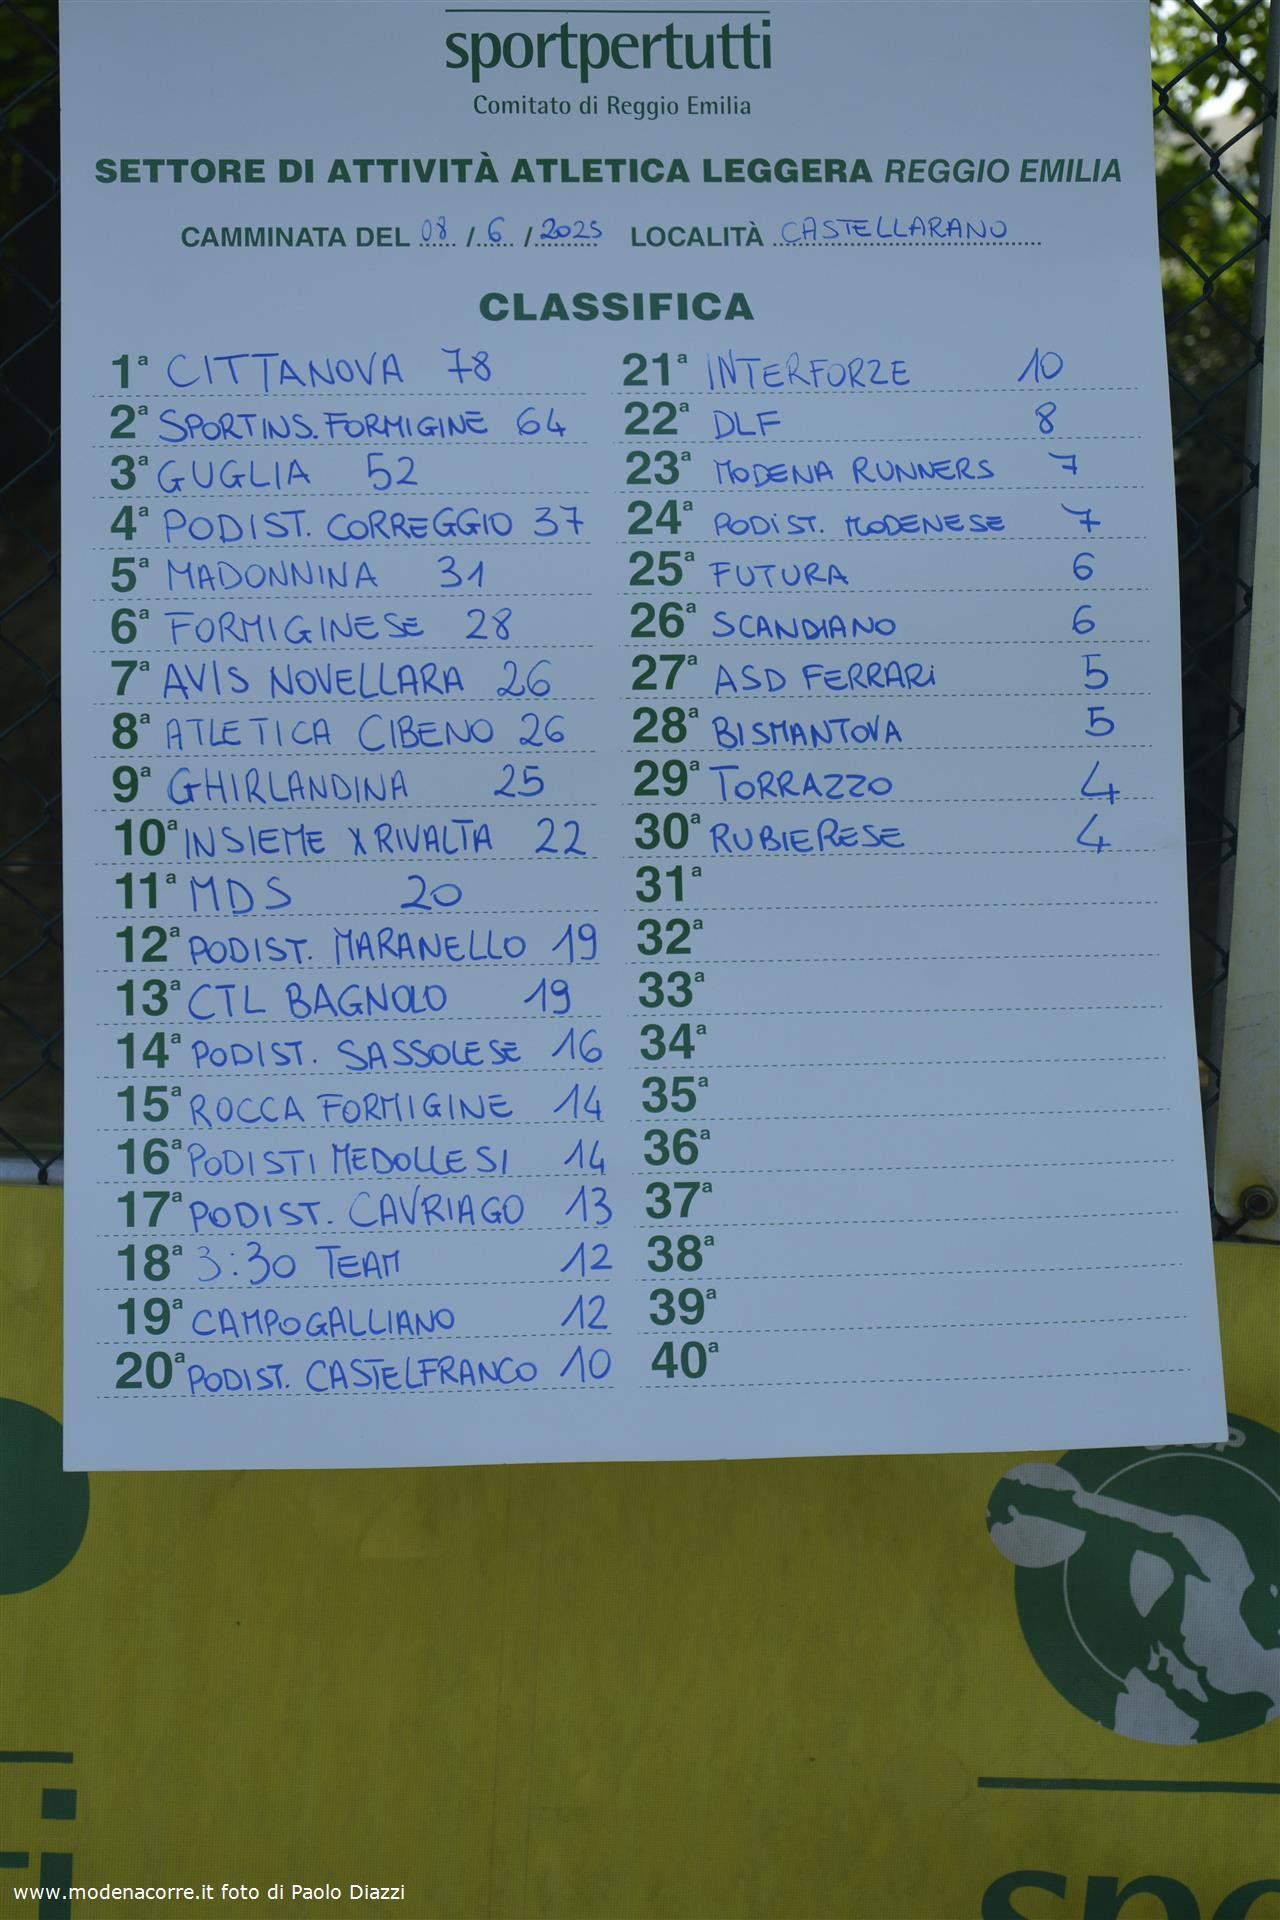 sportpertutti
Comitato di Reggio Emilia
SETTORE DI ATTIVITÀ ATLETICA LEGGERA REGGIO EMILIA
CAMMINATA DEL 08 / 6 / 2025 LOCALITÀ CASTELLARANO
CLASSIFICA
1ª CITTANOVA 78
2ª SPORTINS. FORMIGINE 64
3ª GUGLIA 52
4ª PODIST. CORREGGIO 37
5ª MADONNINA 31
6ª FORMIGINESE 28
7ª AVIS NOVELLARA 26
8ª ATLETICA CIBENO 26
9ª GHIRLANDINA 25
10ª INSIEME X RIVALTA 22
11ª MDS 20
12ª PODIST. MARANELLO 19
13ª CTL BAGNOLO 19
14ª PODIST. SASSOLESE 16
15ª ROCCA FORMIGINE 14
16ª PODISTI MEDOLLESI 14
17ª PODIST. CAVRIAGO 13
18ª 3:30 TEAM 12
19ª CAMPOGALLIANO 12
20ª PODIST. CASTELFRANCO 10
21ª INTERFORZE 10
22ª DLF 8
23ª MODENA RUNNERS 7
24ª PODIST. MODENESE 7
25ª FUTURA 6
26ª SCANDIANO 6
27ª ASD FERRARI 5
28ª BISMANTOVA 5
29ª TORRAZZO 4
30ª RUBIERESE 4
31ª
32ª
33ª
34ª
35ª
36ª
37ª
38ª
39ª
40ª
www.modenacorre.it foto di Paolo Diazzi